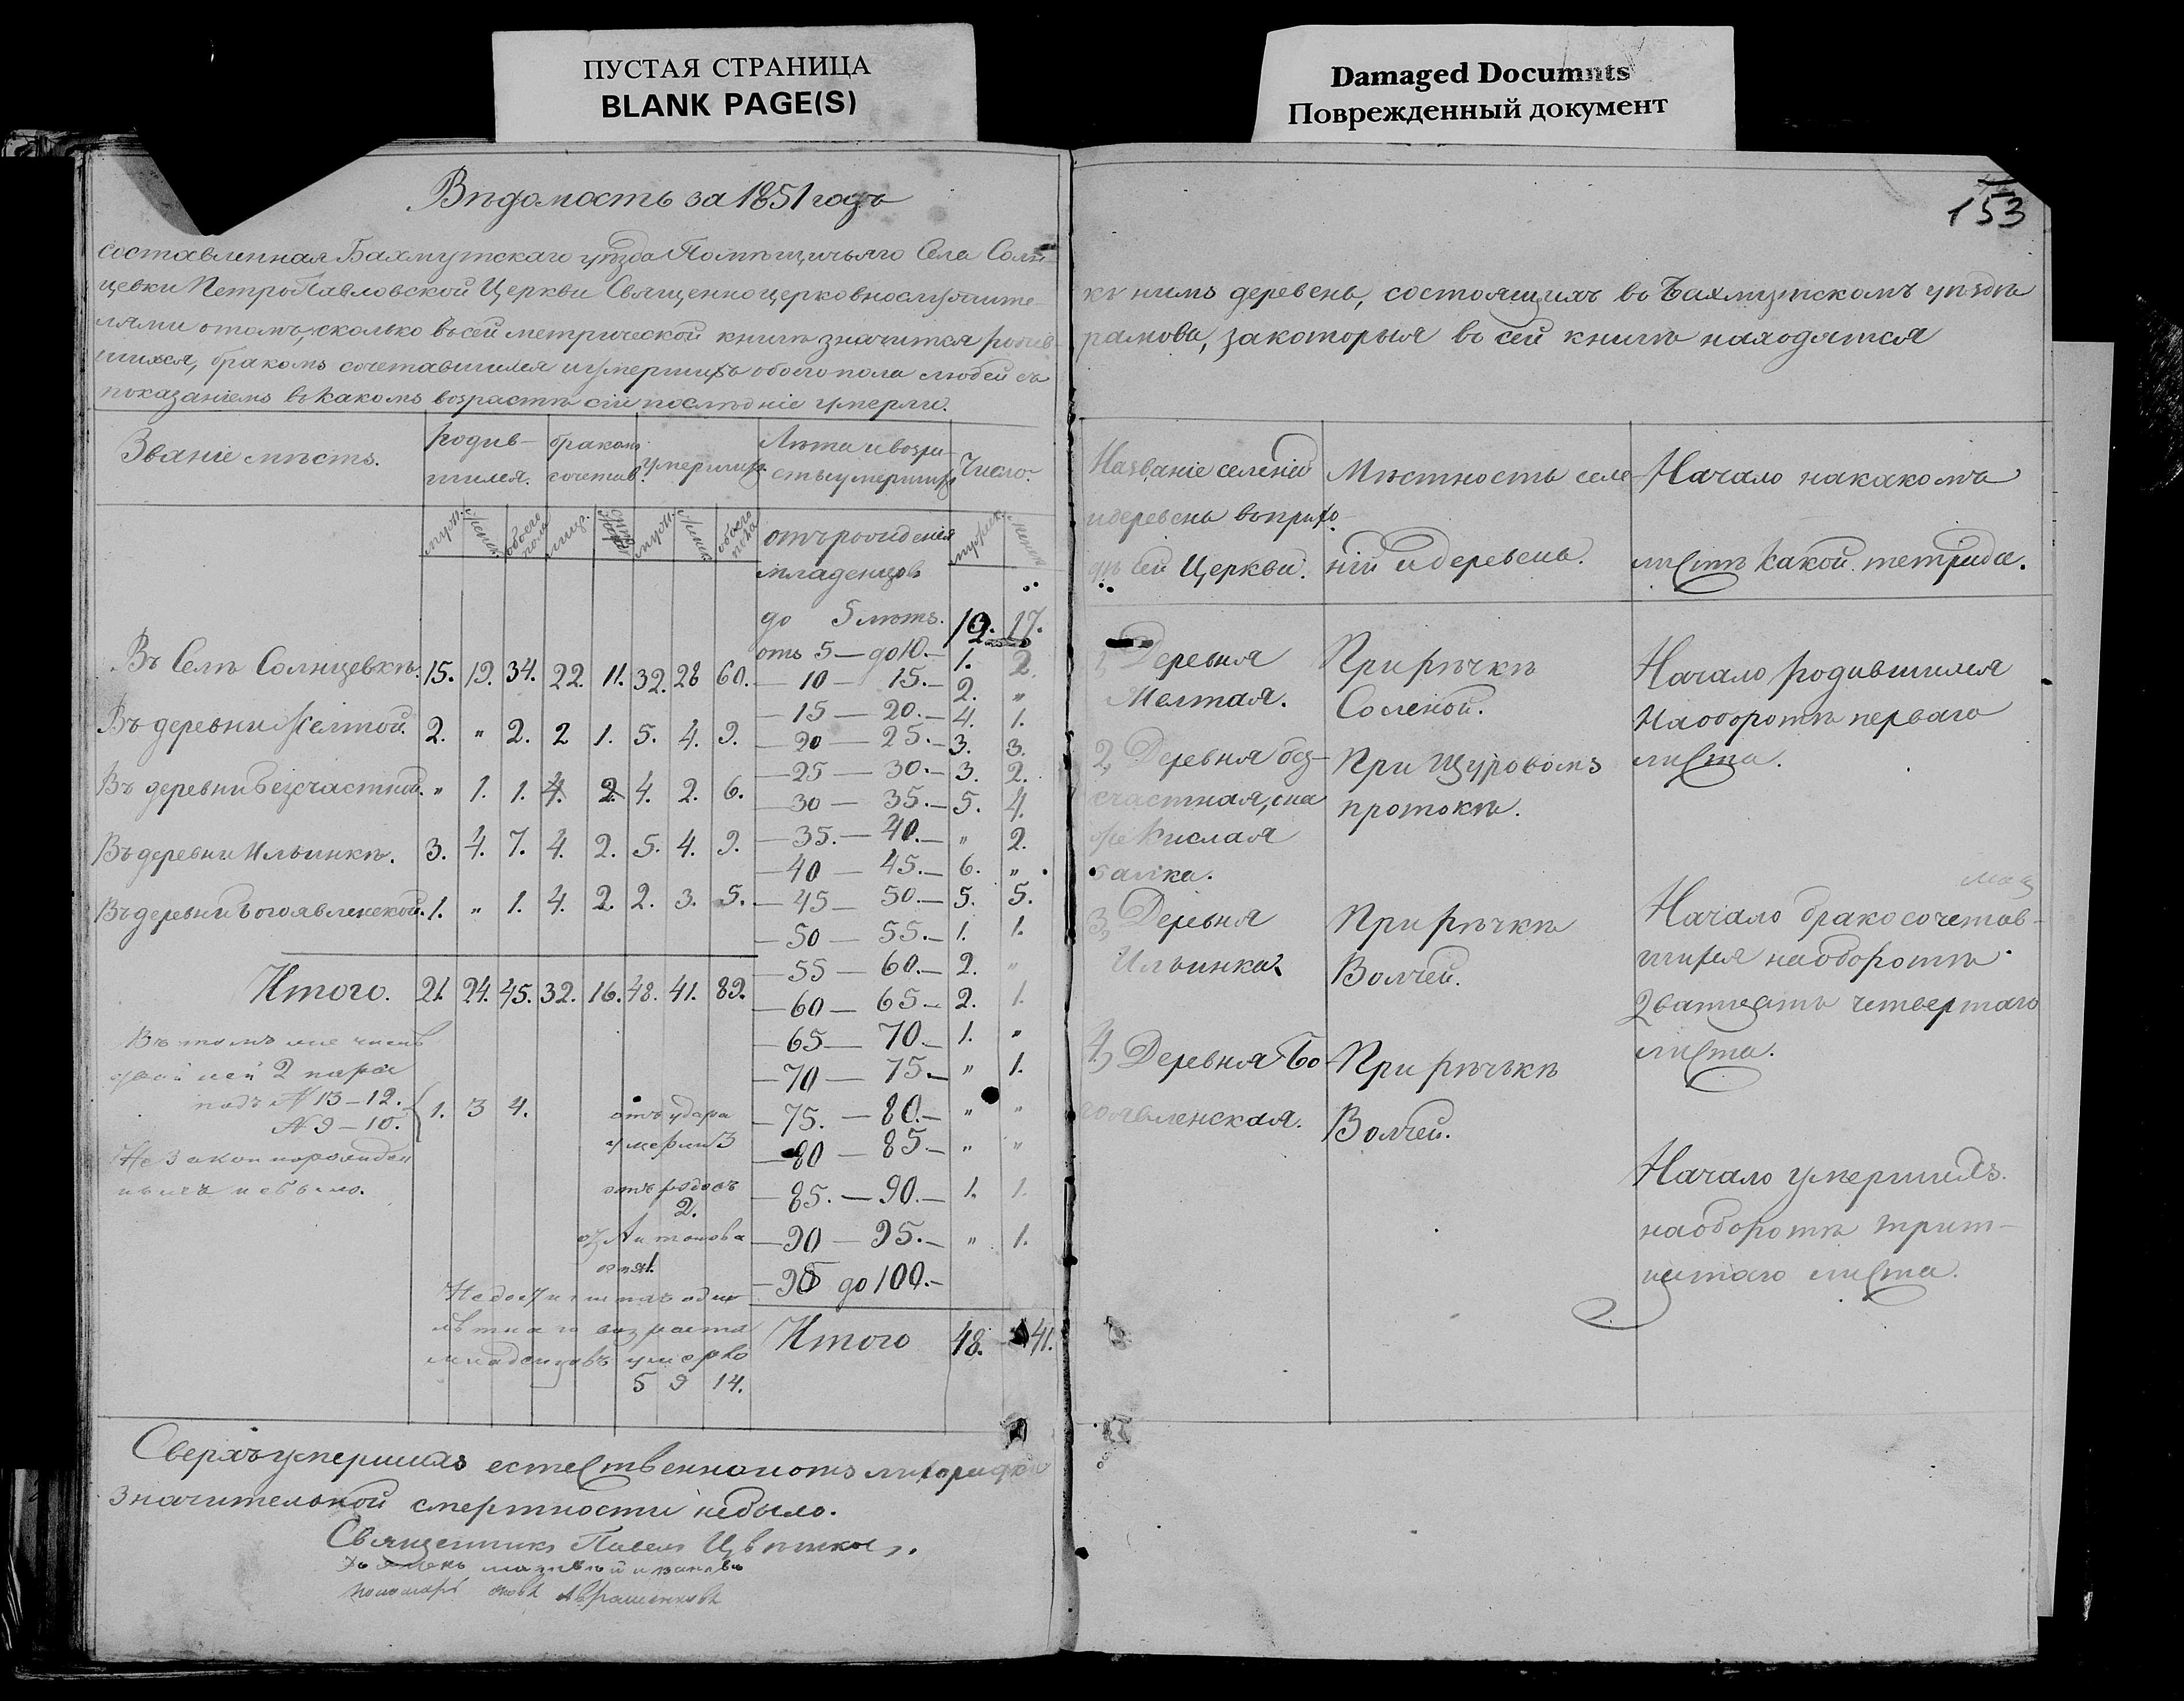 ПУСТАЯ СТРАНИЦА
BLANK PAGE(S)
Damaged Documnts
Поврежденный документ
153
Вѣдомость за 1851 годъ
составленная Бахмутскаго уѣзда Помѣщичьяго Села Солн
цевки ПетроПавловской Церкви Священноцерковнослужите-
лями о томъ, сколько въ сей метрической книгѣ значится родив
шихся, бракомъ сочетавшихся и умершихъ обоего пола людей съ
показаніемъ въ какомъ возрастѣ сіи послѣдніе умерли.
Званіе мѣстъ.
родив-
шихся.
бракомъ
сочетав.
умершихъ
Лѣта и возра-
сты умершихъ
Число.
муж. женс. обоего пола лицъ. муж. женс. обоего пола
отъ рожденія
младенцовъ
до 5 лѣтъ. 19. 17.
отъ 5 — до 10.— 1. 2.
— 10 — 15.— 2. "
— 15 — 20.— 4. 1.
— 20 — 25.— 3. 3.
— 25 — 30.— 3. 2.
— 30 — 35.— 5. 4.
— 35. — 40.— " 2.
— 40 — 45.— 6. "
— 45 — 50.— 5. 5.
— 50 — 55.— 1. 1.
— 55 — 60.— 2. "
— 60 — 65.— 2. 1.
— 65 — 70.— 1. "
— 70 — 75.— " 1.
— 75. — 80.— " "
— 80 — 85.— " "
— 85. — 90.— 1. 1.
— 90 — 95.— " 1.
— 95 до 100.—
Итого 48. 41.
Въ Селѣ Солнцевкѣ. 15. 19. 34. 22. 11. 32. 28 60.
Въ деревни Желтой. 2. " 2. 2 1. 5. 4. 9.
Въ деревни Безсчастной. " 1. 1. 4. 2. 4. 2. 6.
Въ деревни Ильинкѣ. 3. 4. 7. 4. 2. 5. 4. 9.
Въ деревни Богоявленской. 1. " 1. 4. 2. 2. 3. 5.
Итого. 21. 24. 45. 32. 16. 48. 41. 89.
Въ томъ же числѣ
двойней 2 пара
подъ № 13 — 12.
№ 9 — 10. 1. 3 4.
Не законнорожден
ныхъ небыло.
отъ удара
умерли 3
отъ родовъ
2.
отъ Антонова
огня 1.
Недостигшихъ одно
лѣтнаго возраста
младенцовъ умерло
5 9 14.
Сверхъ умершихъ естественно и отъ
значительной смертности небыло.
Священникъ Павелъ Цвѣтковъ.
пономарь Авраменковъ
къ нимъ деревень, состоящихъ въ Бахмутскомъ уѣздѣ
рамовъ, за которыя въ сей книгѣ находятся
Названіе селеній
и деревень въ прихо
дѣ сей Церкви.
Мѣстность селе-
ній и деревень.
Начало на какомъ
листѣ какой тетрида.
1, Деревня
Желтая.
При рѣчкѣ
Соленой.
Начало родившихся
На оборотѣ перваго
листа.
2, Деревня без-
счастная, она
же Кислая
балка.
При Щуровомъ
протокѣ.
3, Деревня
Ильинка.
При рѣчкѣ
Волчей.
Начало бракосочетав-
шихся на оборотѣ
Двадцать четвертаго
листа.
4, Деревня Бо-
гоявленская.
При рѣчькѣ
Волчей.
Начало умершихъ.
на оборотѣ трит-
цатаго листа.